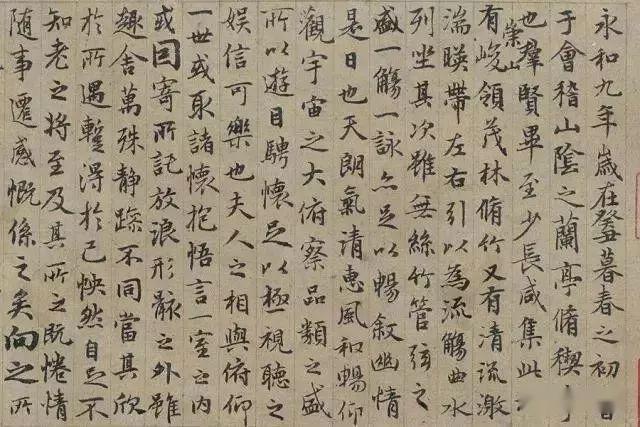 永和九年歲在癸丑暮春之初會
于會稽山陰之蘭亭脩稧
也羣賢畢至少長咸集此
崇山
有峻領茂林脩竹又有清流激
湍暎帶左右引以為流觴曲水
列坐其次雖無絲竹管弦之
盛一觴一詠亦足以暢敘幽情
是日也天朗氣清惠風和暢仰
觀宇宙之大俯察品類之盛
所以遊目騁懷足以極視聽之
娛信可樂也夫人之相與俯仰
一世或取諸懷抱悟言一室之內
或因寄所託放浪形骸之外雖
趣舍萬殊靜躁不同當其欣
於所遇蹔得於己怏然自足不
知老之將至及其所之既惓情
隨事遷感慨係之矣向之所